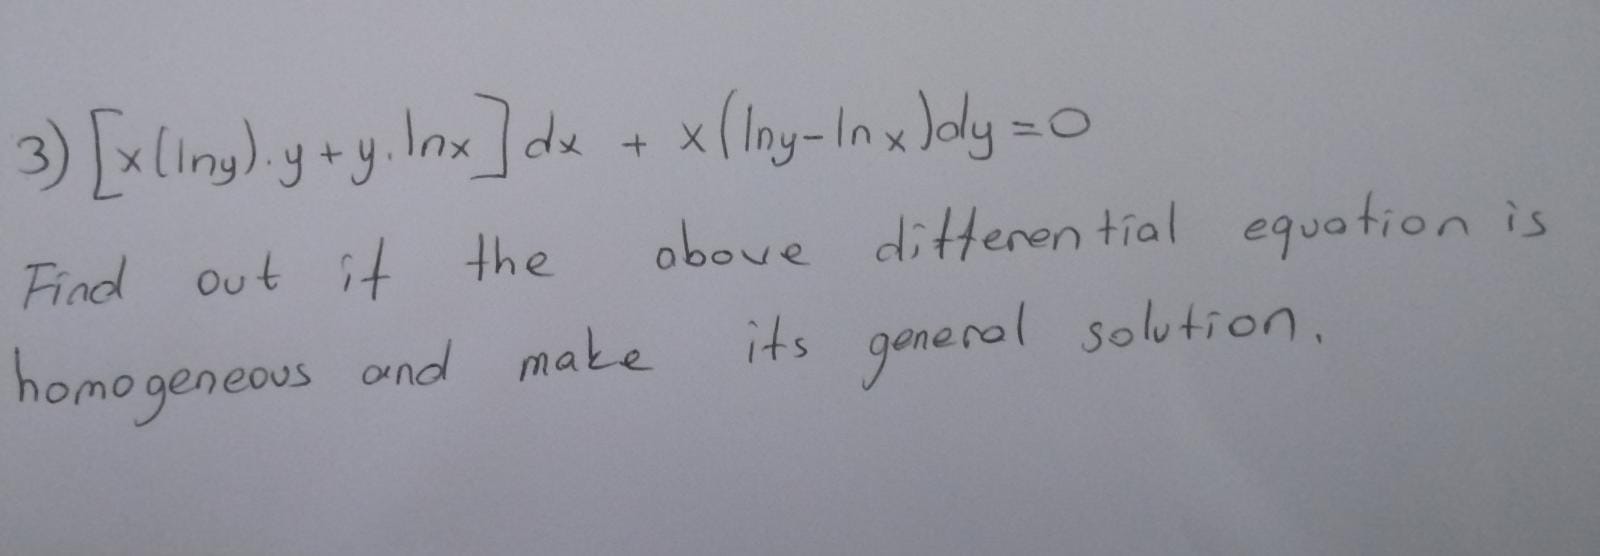 3) [x(lny).y+y.lnx]dx + x(lny-lnx)dy=0
Find out if the above differential equation is
homogeneous and make its general solution.